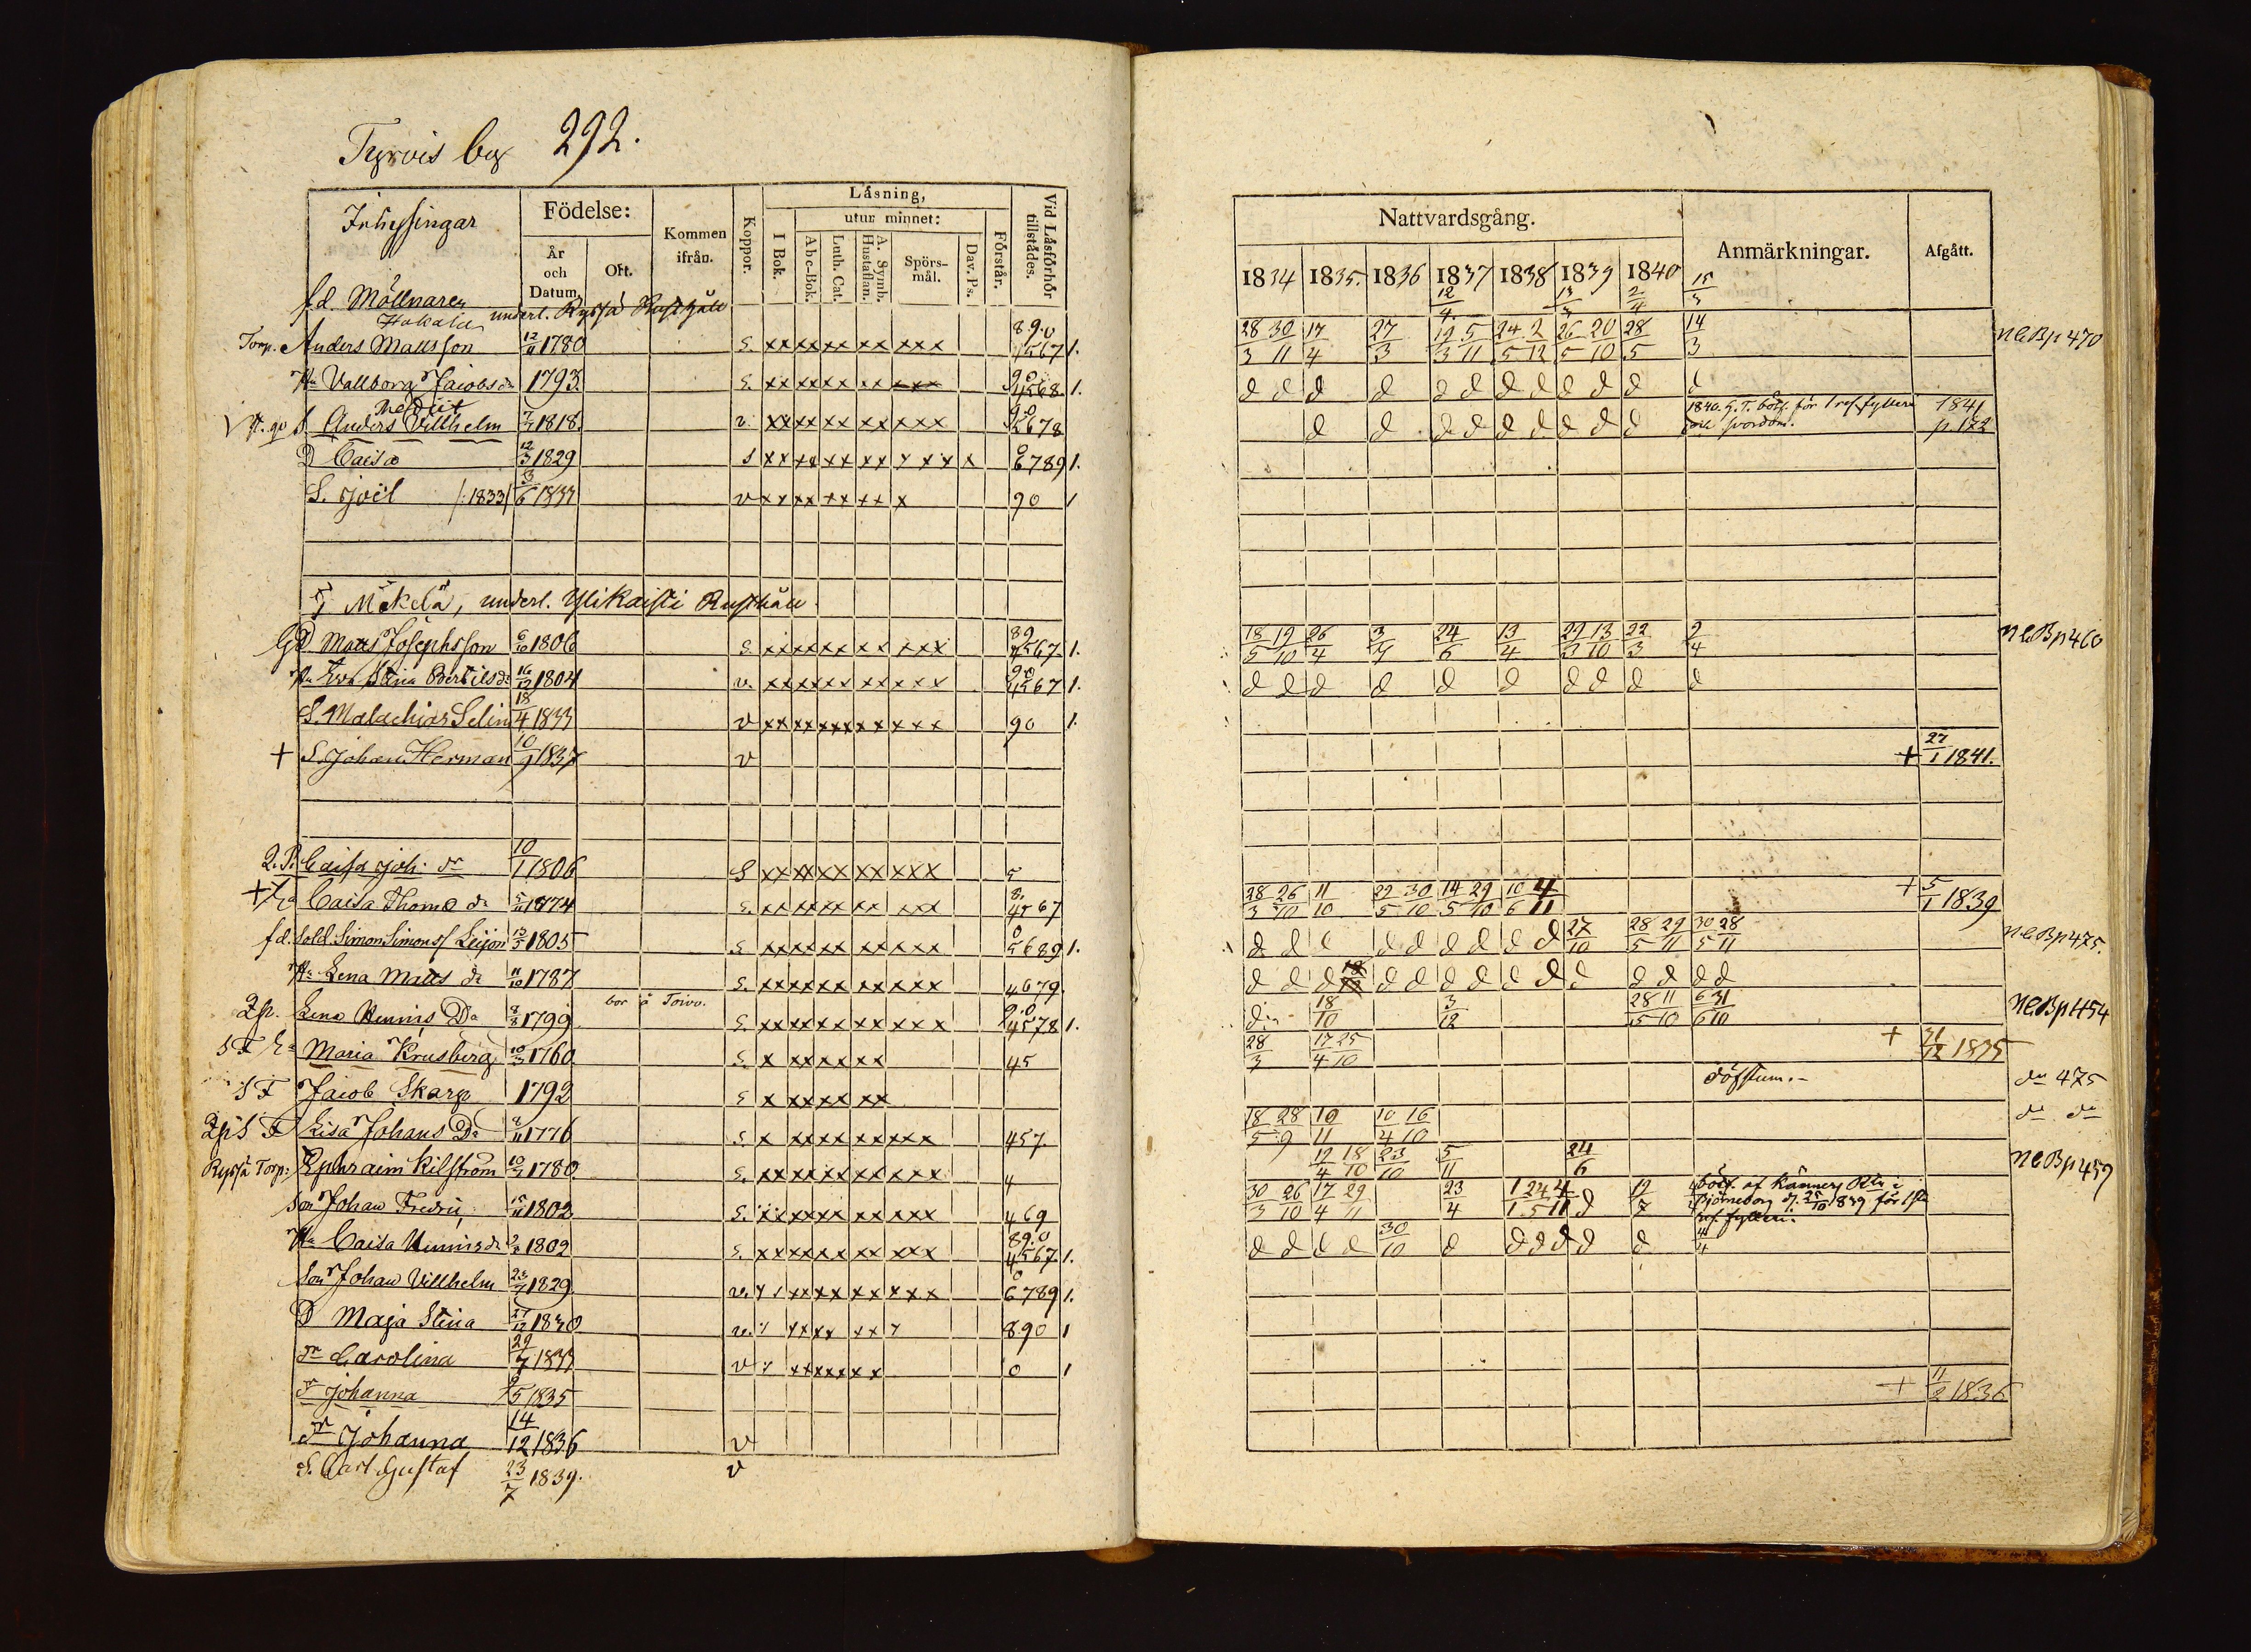 Tyrvis by 292.
Inhysingar
Födelse:
År och Datum.
Ort.
Kommen ifrån.
Koppor.
Läsning,
I Bok.
utur minnet:
Abc-Bok.
Luth. Cat.
A. Symb. Hustaflan.
Spörsmål.
Dav. Ps.
Förstår.
Vid Läsförhör tillstådes.
f.d. Möllnaren
Hakala underl. Ryssä Rusthåll
Torp. Anders Mattsson 12/11 1780 S. xx xx xx xx xxx 89.0 4567 1.
Hu Vallborg Jacobs dr 1793 S. xx xx xx xx xxx 90 4568. 1.
S. Anders Villhelm 1818. v. xx xx xx xx xxx 90 5678
D Caisa 12/3 1829 S xx xx xx xx x xx x 0 6789 1.
S. Joel /:1833/ 3/6 1833 v xx xx xx xx x 90 1
Mäkelä, underl. Ylikaisti Rusthåll
GD. Matts Josephsson 6/10 1806 S. xx xx xx xx xxx 89 4567. 1.
Hu Eva Stina Bertils dr 16/12 1804 v. xx xx xx xx xxx 90 4567 1.
S. Malachias Selim 18/4 1833 v xx xx xx xx xxx 90 1.
+ S. Johan Herman 10/9 1837 v
Caisa Joh. dr 10/1 1806 S xx xx xx xx xxx 5
+ Caisa Thomæ dr 5/11 1774 S. xx xx xx xx xxx 8. 4567
fd. Sold. Simon Simonss Leijon 13/5 1805 S xx xx xx xx xxx 0 5689 1.
Hu Lena Matts dr 11/10 1787 S. xx xx xx xx xxx 4679.
bor å Toivo.
Lena Henriks Dr 8/8 1799 S. xx xx xx xx xxx 9.0 4578 1.
SF Maria Krusberg 10/3 1760 S. x xx xx xx 45
SF Jacob Skarp 1792 S x xx xx xx
Lisa Johans Dr 8/11 1776 S. x xx xx xx xxx 457.
Ryssä Torp: Ephraim Kilström 10/7 1780 S. xx xx xx xx xxx 4
Son Johan Fredric 15/11 1802 S. xx xx xx xx xxx 469
Hu Caisa Henriks dr 1802 S. xx xx xx xx xxx 89.0 4567. 1.
Son Johan Villhelm 23/7 1829 v. xx xx xx xx xxx 0 6789 1.
D Maja Stina 27/12 1830 v. x xx xx xx x 8.90 1
dr Carolina 29/7 1833 v x xx xx xx 0 1
dr Johanna 9/5 1835
dr Johanna 14/12 1836 v
S. Carl Gustaf 23/7 1839. v
Nattvardsgång.
Anmärkningar.
Afgått.
1834 1835. 1836 1837 1838 1839 1840
12/4 13/3 2/4 15/3
28/3 30/11 17/4 27/3 19/3 5/11 24/5 2/12 26/5 20/10 28/5 14/3 NCBp 470
d d d d d d d d d d d d
d d d d d d d d d 1840. H.T. böt. för 1 res. fylleri och svordom. 1841 p. 172
18/5 19/10 26/4 3/7 24/6 13/4 29/3 13/10 22/3 2/4 NCBp 460
d d d d d d d d d d
+ 27/1 1841.
28/3 26/10 11/10 22/5 30/10 14/5 29/10 10/6 4/11 + 5/1 1839
d d d d d d d d d 27/10 28/5 29/11 30/5 28/11 NCBp 475.
d d d d d d d d d d d d d d
18/10 3/12 28/5 11/10 6/6 31/10 NCBp 454
28/3 17/4 25/10 + 31/12 1835
döfstum.- do 475
18/5 28/9 19/11 10/4 16/10 do do
12/4 18/10 23/10 5/11 24/6 NCBp 459
30/3 26/10 17/4 29/11 23/4 1/1 24/5 4/11 d 19/7 böt. af Kämners Rtn i Björneborg d. 25/10 1839 för 1sta res. fylleri.
d d d d 30/10 d d d d d d 4/4
+ 11/2 1836